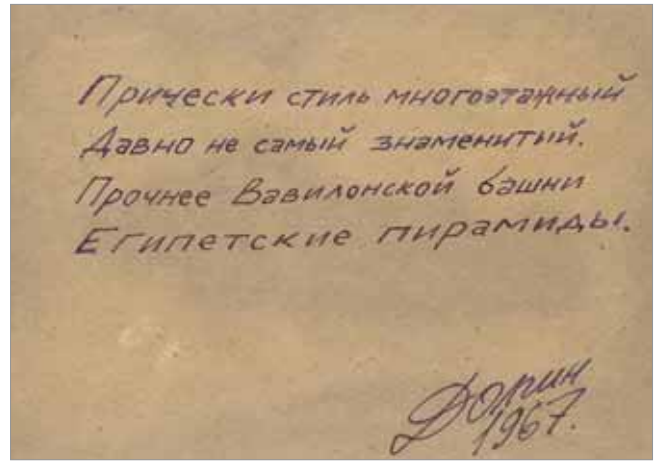 Прически стиль многоэтажный
Давно не самый знаменитый.
Прочнее Вавилонской башни
Египетские пирамиды.
1967.